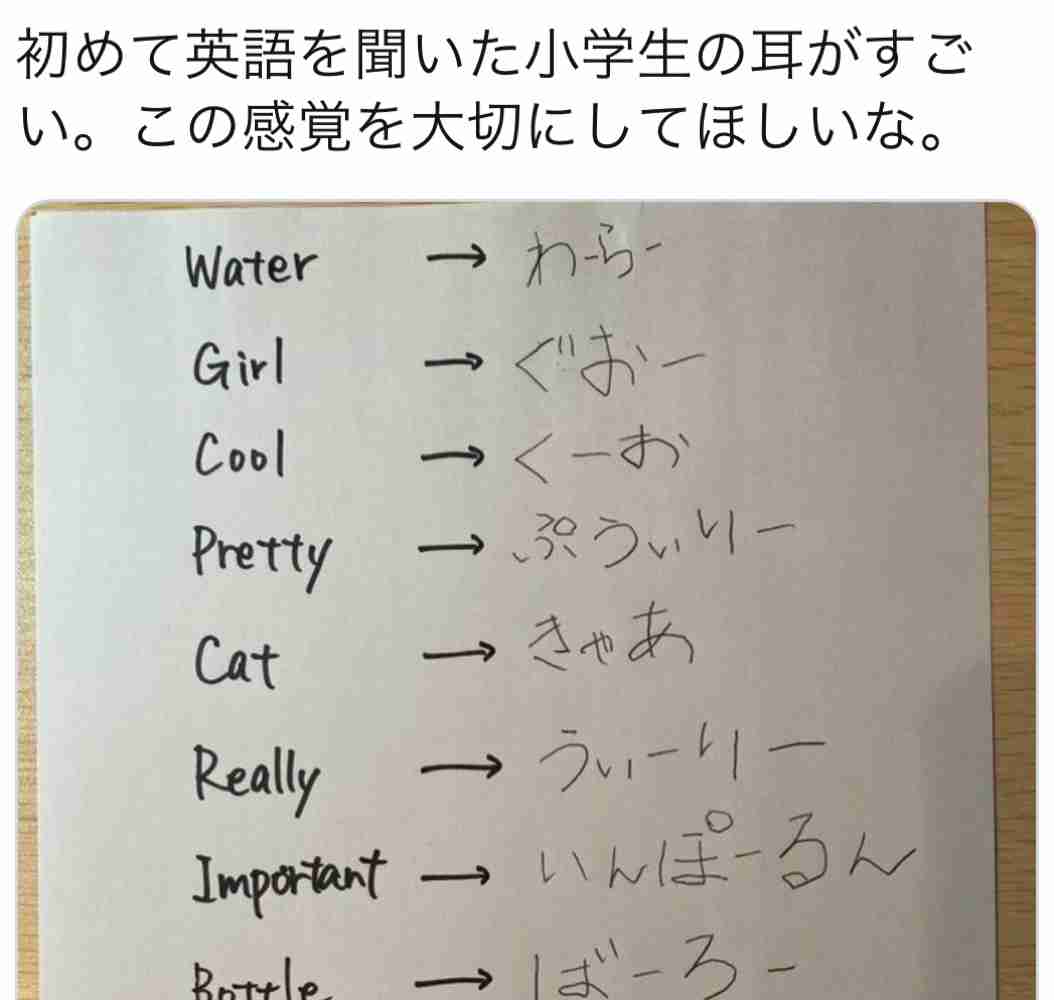 初めて英語を聞いた小学生の耳がすご
い。この感覚を大切にしてほしいな。
Water → わーらー
Girl → ぐおー
Cool → くーお
Pretty → ぷうぃりー
Cat → きゃあ
Really → うぃーりー
Important → いんぽーるん
Bottle → ばーろー